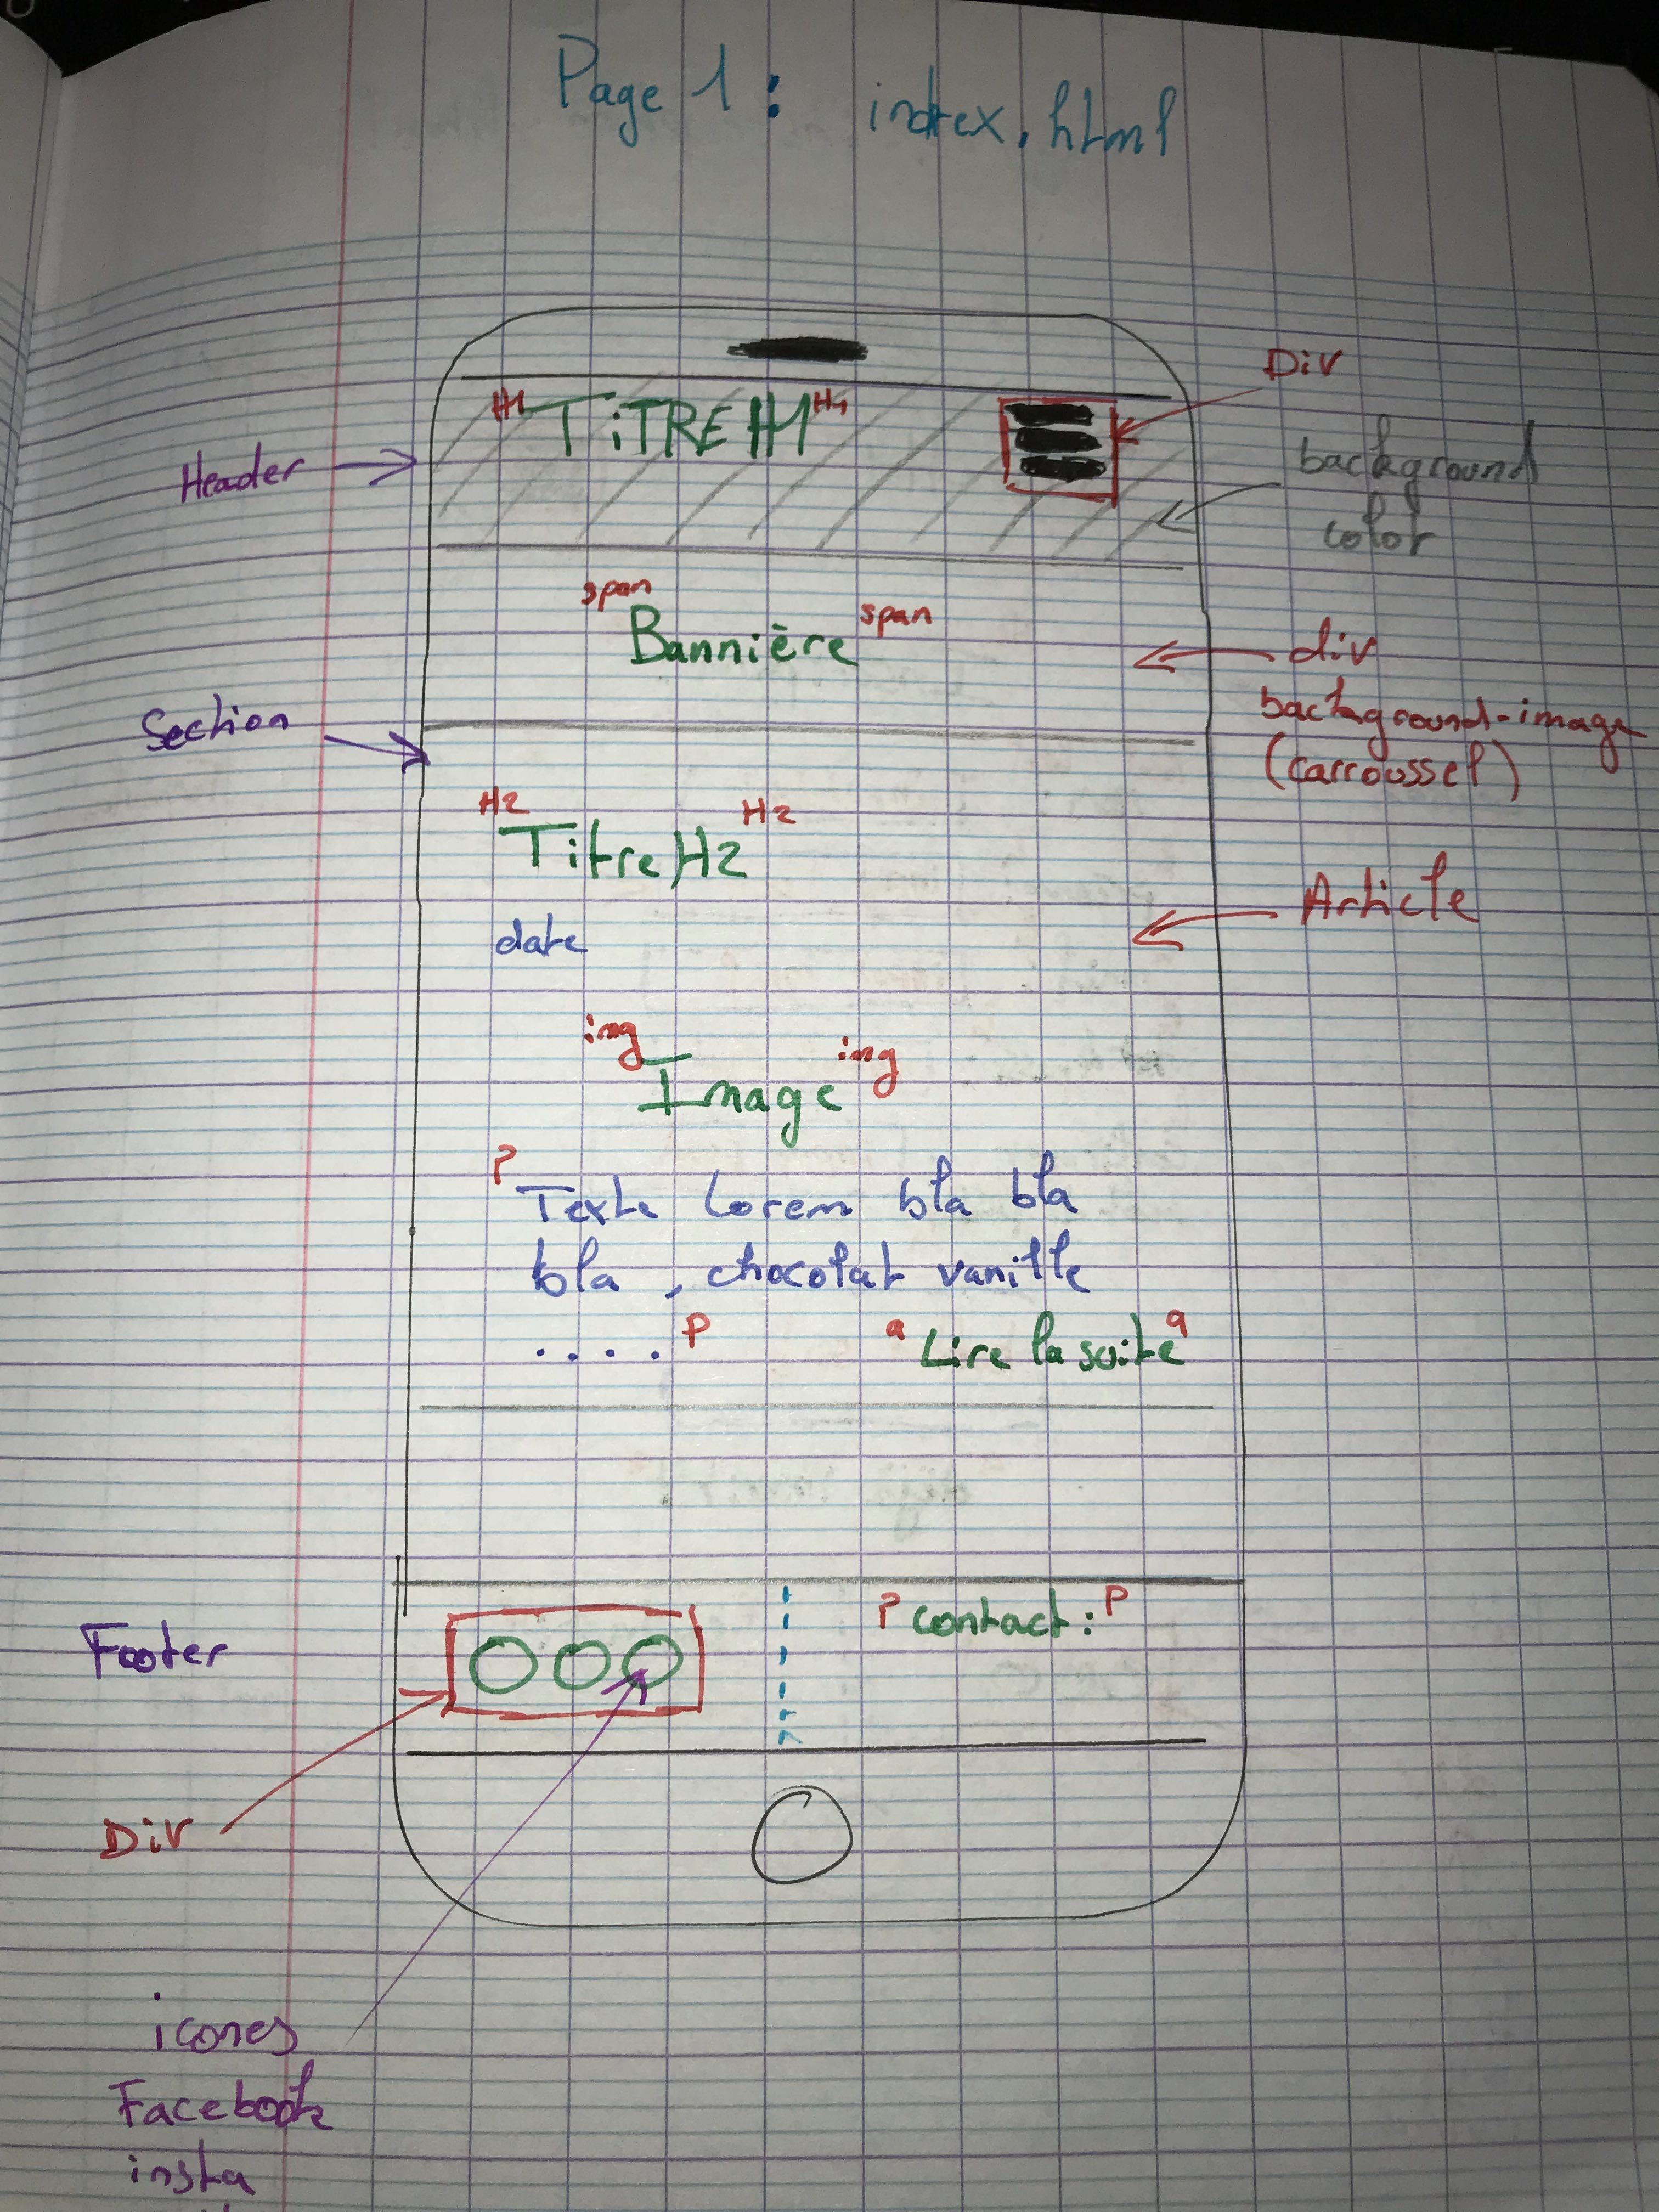 Page 1 : index.html
Div
H1 TiTRE H1 H1
Header
background
color
span Bannière span
div
background-image
(carroussel)
Section
H2 Titre H2 H2
Article
date
img Image img
P Texte Lorem bla bla
bla , chocolat vanille
.... P a Lire la suite a
P contact : P
Footer
Div
icones
Facebook
insta